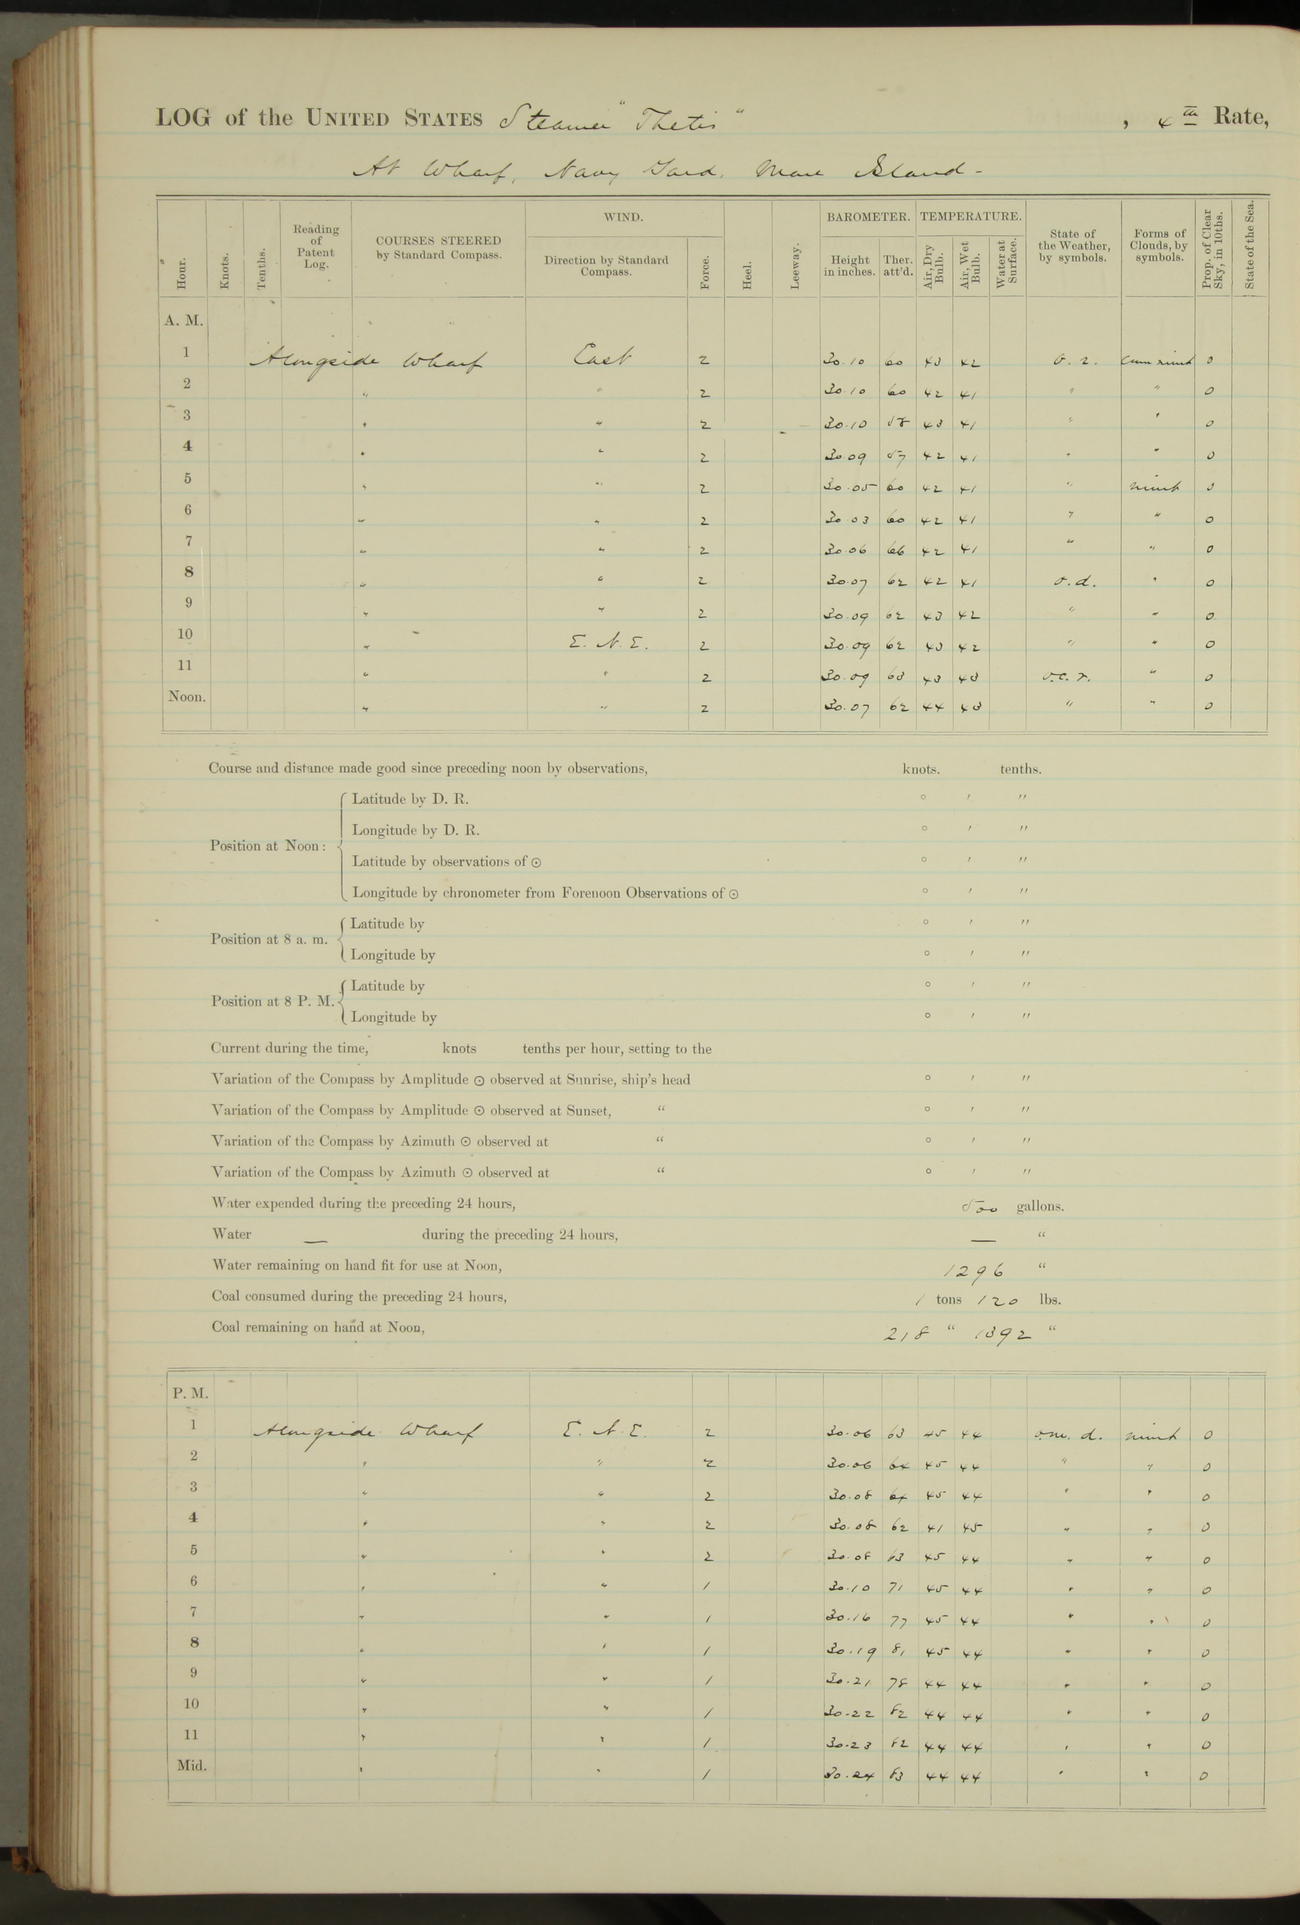 LOG of the UNITED STATES Steamer "Thetis", 4th Rate,
At Wharf, Navy Yard, Mare Island -
Hour. Knots. Tenths. Reading of Patent Log. COURSES STEERED by Standard Compass. WIND. Direction by Standard Compass. Force. Heel. Leeway. BAROMETER. Height in inches. Ther. att'd. TEMPERATURE. Air, Dry Bulb. Air, Wet Bulb. Water at Surface. State of the Weather, by symbols. Forms of Clouds, by symbols. Prop. of Clear Sky, in 10ths. State of the Sea.
A. M.
1 Alongside Wharf East 2 30.10 60 43 42 o. r. Cum nimb 0
2 " " 2 30.10 60 42 41 " " 0
3 " " 2 30.10 58 43 41 " " 0
4 " " 2 30.09 57 42 41 " " 0
5 " " 2 30.05 60 42 41 " nimb 0
6 " " 2 30.03 60 42 41 " " 0
7 " " 2 30.06 66 42 41 " " 0
8 " " 2 30.07 62 42 41 o. d. " 0
9 " " 2 30.09 62 43 42 " " 0
10 " E. N. E. 2 30.09 62 43 42 " " 0
11 " " 2 30.09 63 43 43 o.c. r. " 0
Noon. " " 2 30.07 62 44 43 " " 0
Course and distance made good since preceding noon by observations, knots. tenths.
Position at Noon:
Latitude by D. R. ° ′ ″
Longitude by D. R. ° ′ ″
Latitude by observations of ⊙ ° ′ ″
Longitude by chronometer from Forenoon Observations of ⊙ ° ′ ″
Position at 8 a. m.
Latitude by ° ′ ″
Longitude by ° ′ ″
Position at 8 P. M.
Latitude by ° ′ ″
Longitude by ° ′ ″
Current during the time, knots tenths per hour, setting to the
Variation of the Compass by Amplitude ⊙ observed at Sunrise, ship's head ° ′ ″
Variation of the Compass by Amplitude ⊙ observed at Sunset, " ° ′ ″
Variation of the Compass by Azimuth ⊙ observed at " ° ′ ″
Variation of the Compass by Azimuth ⊙ observed at " ° ′ ″
Water expended during the preceding 24 hours, 500 gallons.
Water — during the preceding 24 hours, — "
Water remaining on hand fit for use at Noon, 1296 "
Coal consumed during the preceding 24 hours, 1 tons 120 lbs.
Coal remaining on hand at Noon, 218 " 1392 "
P. M.
1 Alongside Wharf E. N. E. 2 30.06 63 45 44 o.m. d. nimb 0
2 " " 2 30.06 64 45 44 " " 0
3 " " 2 30.08 64 45 44 " " 0
4 " " 2 30.08 62 41 45 " " 0
5 " " 2 30.08 63 45 44 " " 0
6 " " 1 30.10 71 45 44 " " 0
7 " " 1 30.16 77 45 44 " " 0
8 " " 1 30.19 81 45 44 " " 0
9 " " 1 30.21 78 44 44 " " 0
10 " " 1 30.22 82 44 44 " " 0
11 " " 1 30.23 82 44 44 " " 0
Mid. " " 1 30.24 83 44 44 " " 0